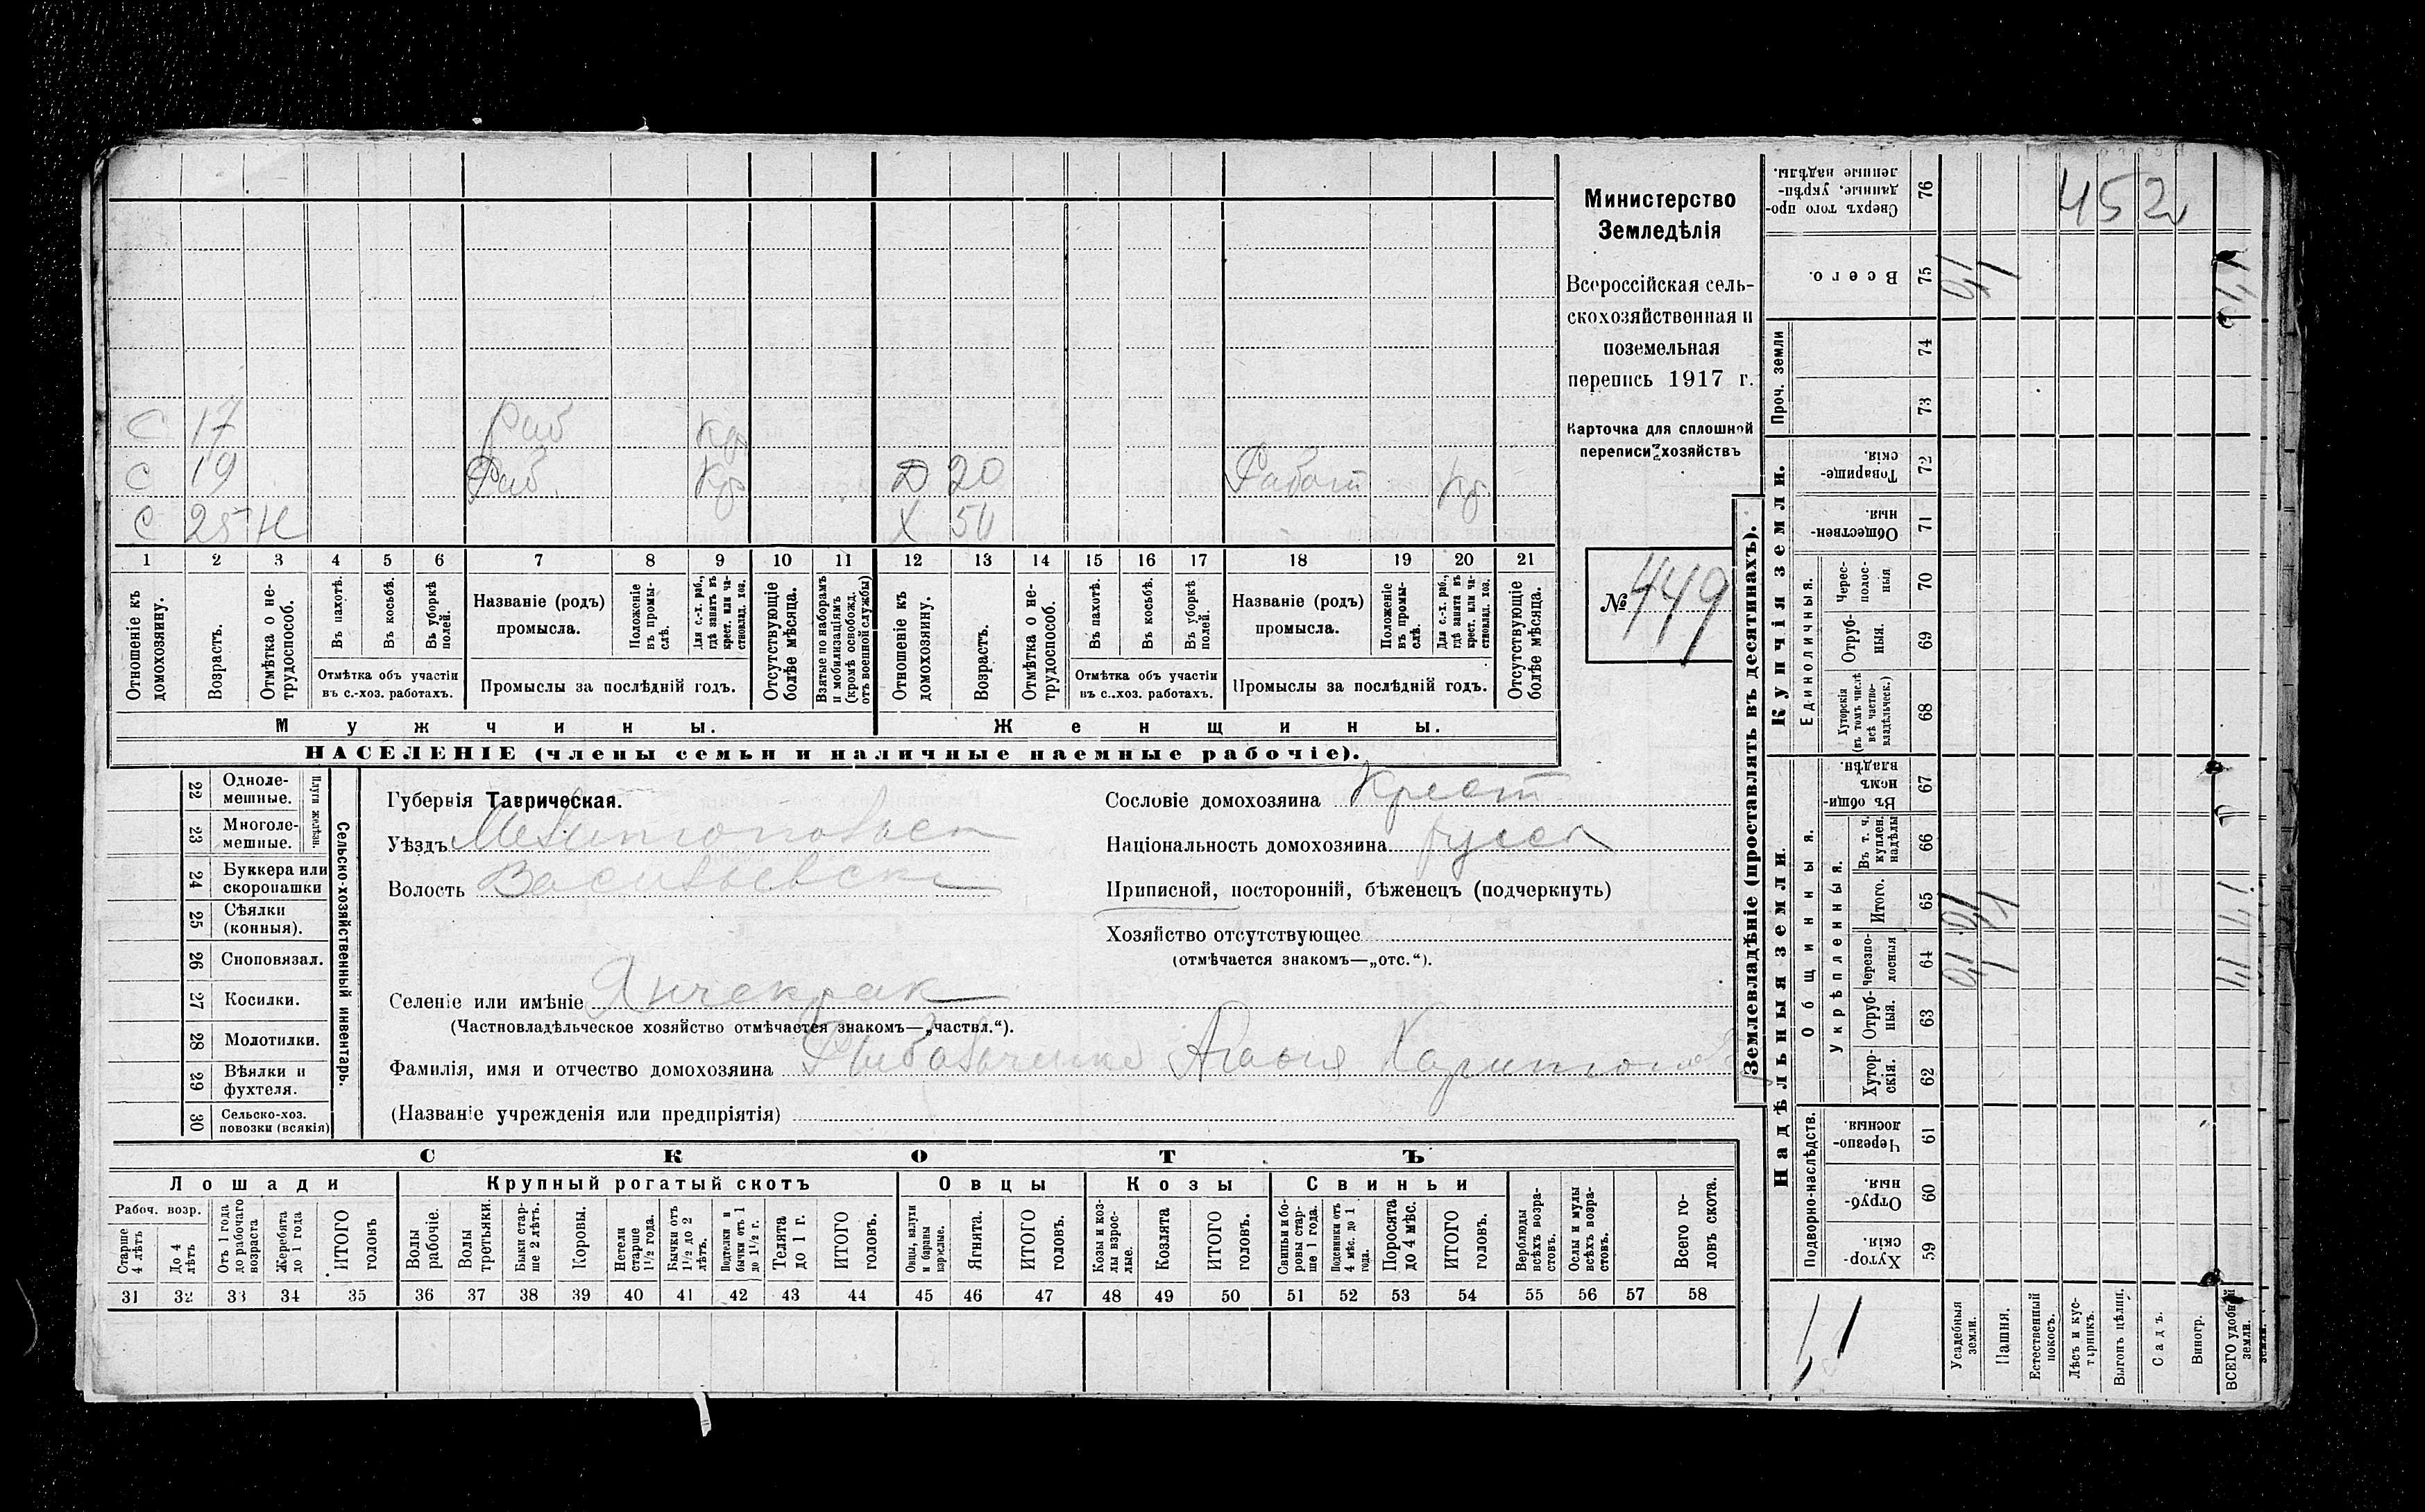 452
С 17 Раб кр
С 19 Раб. кр Д 20 Работ кр
С 25 Н Х 50
1 2 3 4 5 6 7 8 9 10 11 12 13 14 15 16 17 18 19 20 21
Отношеніе къ домохозяину.
Возрастъ.
Отмѣтка о нетрудоспособ.
Въ пахотѣ.
Въ косьбѣ.
Въ уборкѣ полей.
Отмѣтка объ участіи
въ с.-хоз. работахъ.
Названіе (родъ)
промысла.
Положеніе въ промыслѣ.
Для с.-х. раб., гдѣ занятъ въ крест. или частновлад. хоз.
Промыслы за послѣдній годъ.
Отсутствующіе болѣе мѣсяца.
Взятые по наборамъ и мобилизаціямъ (кромѣ освобожд. отъ военной службы)
Отношеніе къ домохозяину.
Возрастъ.
Отмѣтка о нетрудоспособ.
Въ пахотѣ.
Въ косьбѣ.
Въ уборкѣ полей.
Отмѣтка объ участіи
въ с.-хоз. работахъ.
Названіе (родъ)
промысла.
Положеніе въ промыслѣ.
Для с.-х. раб., гдѣ занята въ крест. или частновлад. хоз.
Промыслы за послѣдній годъ.
Отсутствующіе болѣе мѣсяца.
Мужчины. Женщины.
НАСЕЛЕНІЕ (члены семьи и наличные наемные рабочіе).
Министерство
Земледѣлія
Всероссійская сель-
скохозяйственная и
поземельная
перепись 1917 г.
Карточка для сплошной
переписи хозяйствъ
№ 449
Сельско-хозяйственный инвентарь.
Плуги желѣзн.
22 Одноле-
мешные.
23 Многоле-
мешные.
24 Буккера или
скоропашки
25 Сѣялки
(конныя).
26 Сноповязал.
27 Косилки.
28 Молотилки.
29 Вѣялки и
фухтеля.
30 Сельско-хоз.
повозки (всякія)
Губернія Таврическая.
Уѣздъ Мелитопольск
Волость Васильевск
Селеніе или имѣніе Янчекрак
(Частновладѣльческое хозяйство отмѣчается знакомъ—„частвл.“).
Фамилія, имя и отчество домохозяина Рыбальченко Агафія Харитонов
(Названіе учрежденія или предпріятія)
Сословіе домохозяина Крест
Національность домохозяина русск
Приписной, посторонній, бѣженецъ (подчеркнуть)
Хозяйство отсутствующее
(отмѣчается знакомъ—„отс.“).
СКОТЪ
Лошади Крупный рогатый скотъ Овцы Козы Свиньи
Рабоч. возр.
Старше 4 лѣтъ
До 4 лѣтъ
Отъ 1 года до рабочаго возраста
Жеребята до 1 года
ИТОГО головъ
Волы рабочіе.
Волы третьяки.
Быки старше 2 лѣтъ.
Коровы.
Нетели старше 1½ года.
Бычки отъ 1½ до 2 лѣтъ.
Подтелки и бычки отъ 1 до 1½ г.
Телята до 1 г.
ИТОГО головъ.
Овцы, валухи и бараны взрослые.
Ягнята.
ИТОГО головъ.
Козы и козлы взрослые.
Козлята
ИТОГО головъ.
Свиньи и боровы старше 1 года.
Подсвинки отъ 4 мѣс. до 1 года.
Поросята до 4 мѣс.
ИТОГО головъ.
Верблюды всѣхъ возрастовъ.
Ослы и мулы всѣхъ возрастовъ.
Всего головъ скота.
31 32 33 34 35 36 37 38 39 40 41 42 43 44 45 46 47 48 49 50 51 52 53 54 55 56 57 58
Землевладѣніе (проставлять въ десятинахъ).
Купчія земли.
Надѣльныя земли.
Проч. земли
Единоличныя.
Общинныя.
Укрѣпленныя.
Подворно-наслѣдств.
76 Сверхъ того проданные, укрѣпленные надѣлы.
75 Всего.
74
73
72 Товарищескія.
71 Общественныя.
70 Чересполосныя
69 Отрубныя.
68 Хуторскія (въ томъ числѣ всѣ частновладѣльческ.)
67 Въ общинномъ владѣн.
66 Въ т. ч. куплен. надѣлы
65 Итого.
64 Черезполосныя
63 Отрубныя.
62 Хуторскія.
61 Черезполосныя.
60 Отрубныя.
59 Хуторскія.
Усадебныя земли.
Пашня.
Естественный покосъ.
Лѣсъ и кустарникъ.
Выгонъ цѣлин.
Садъ.
Виногр.
ВСЕГО удобной земли.